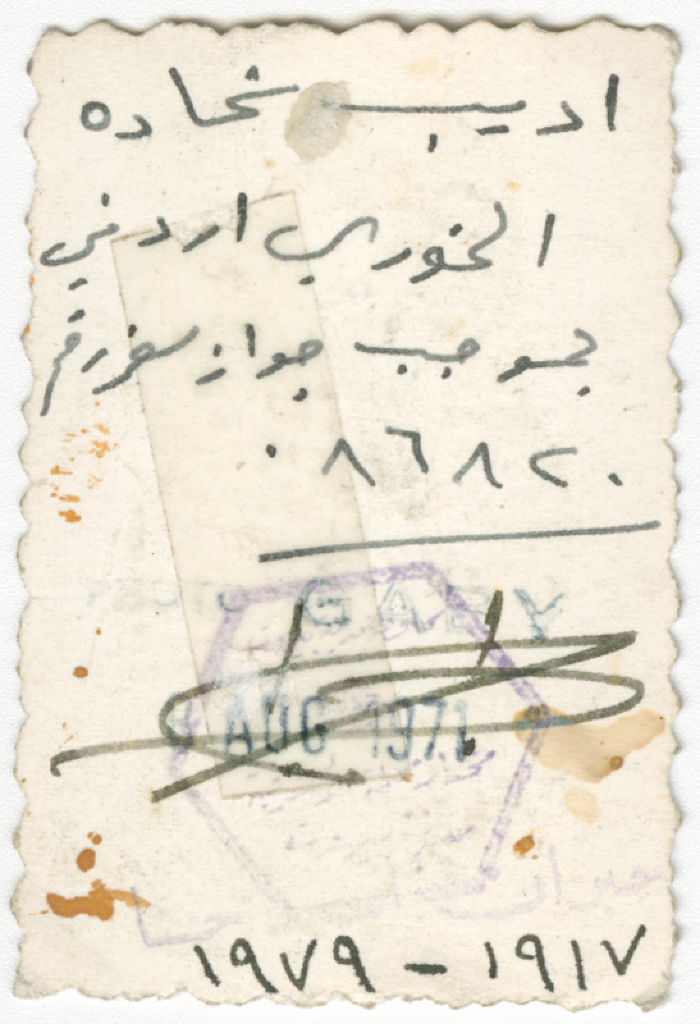 اديب شحاده
الخوري اردني
بموجب جواز سفر رقم
٠٨٦٨٢٠
PHOTO GABY
AUG 1971
١٩١٧ - ١٩٧٩